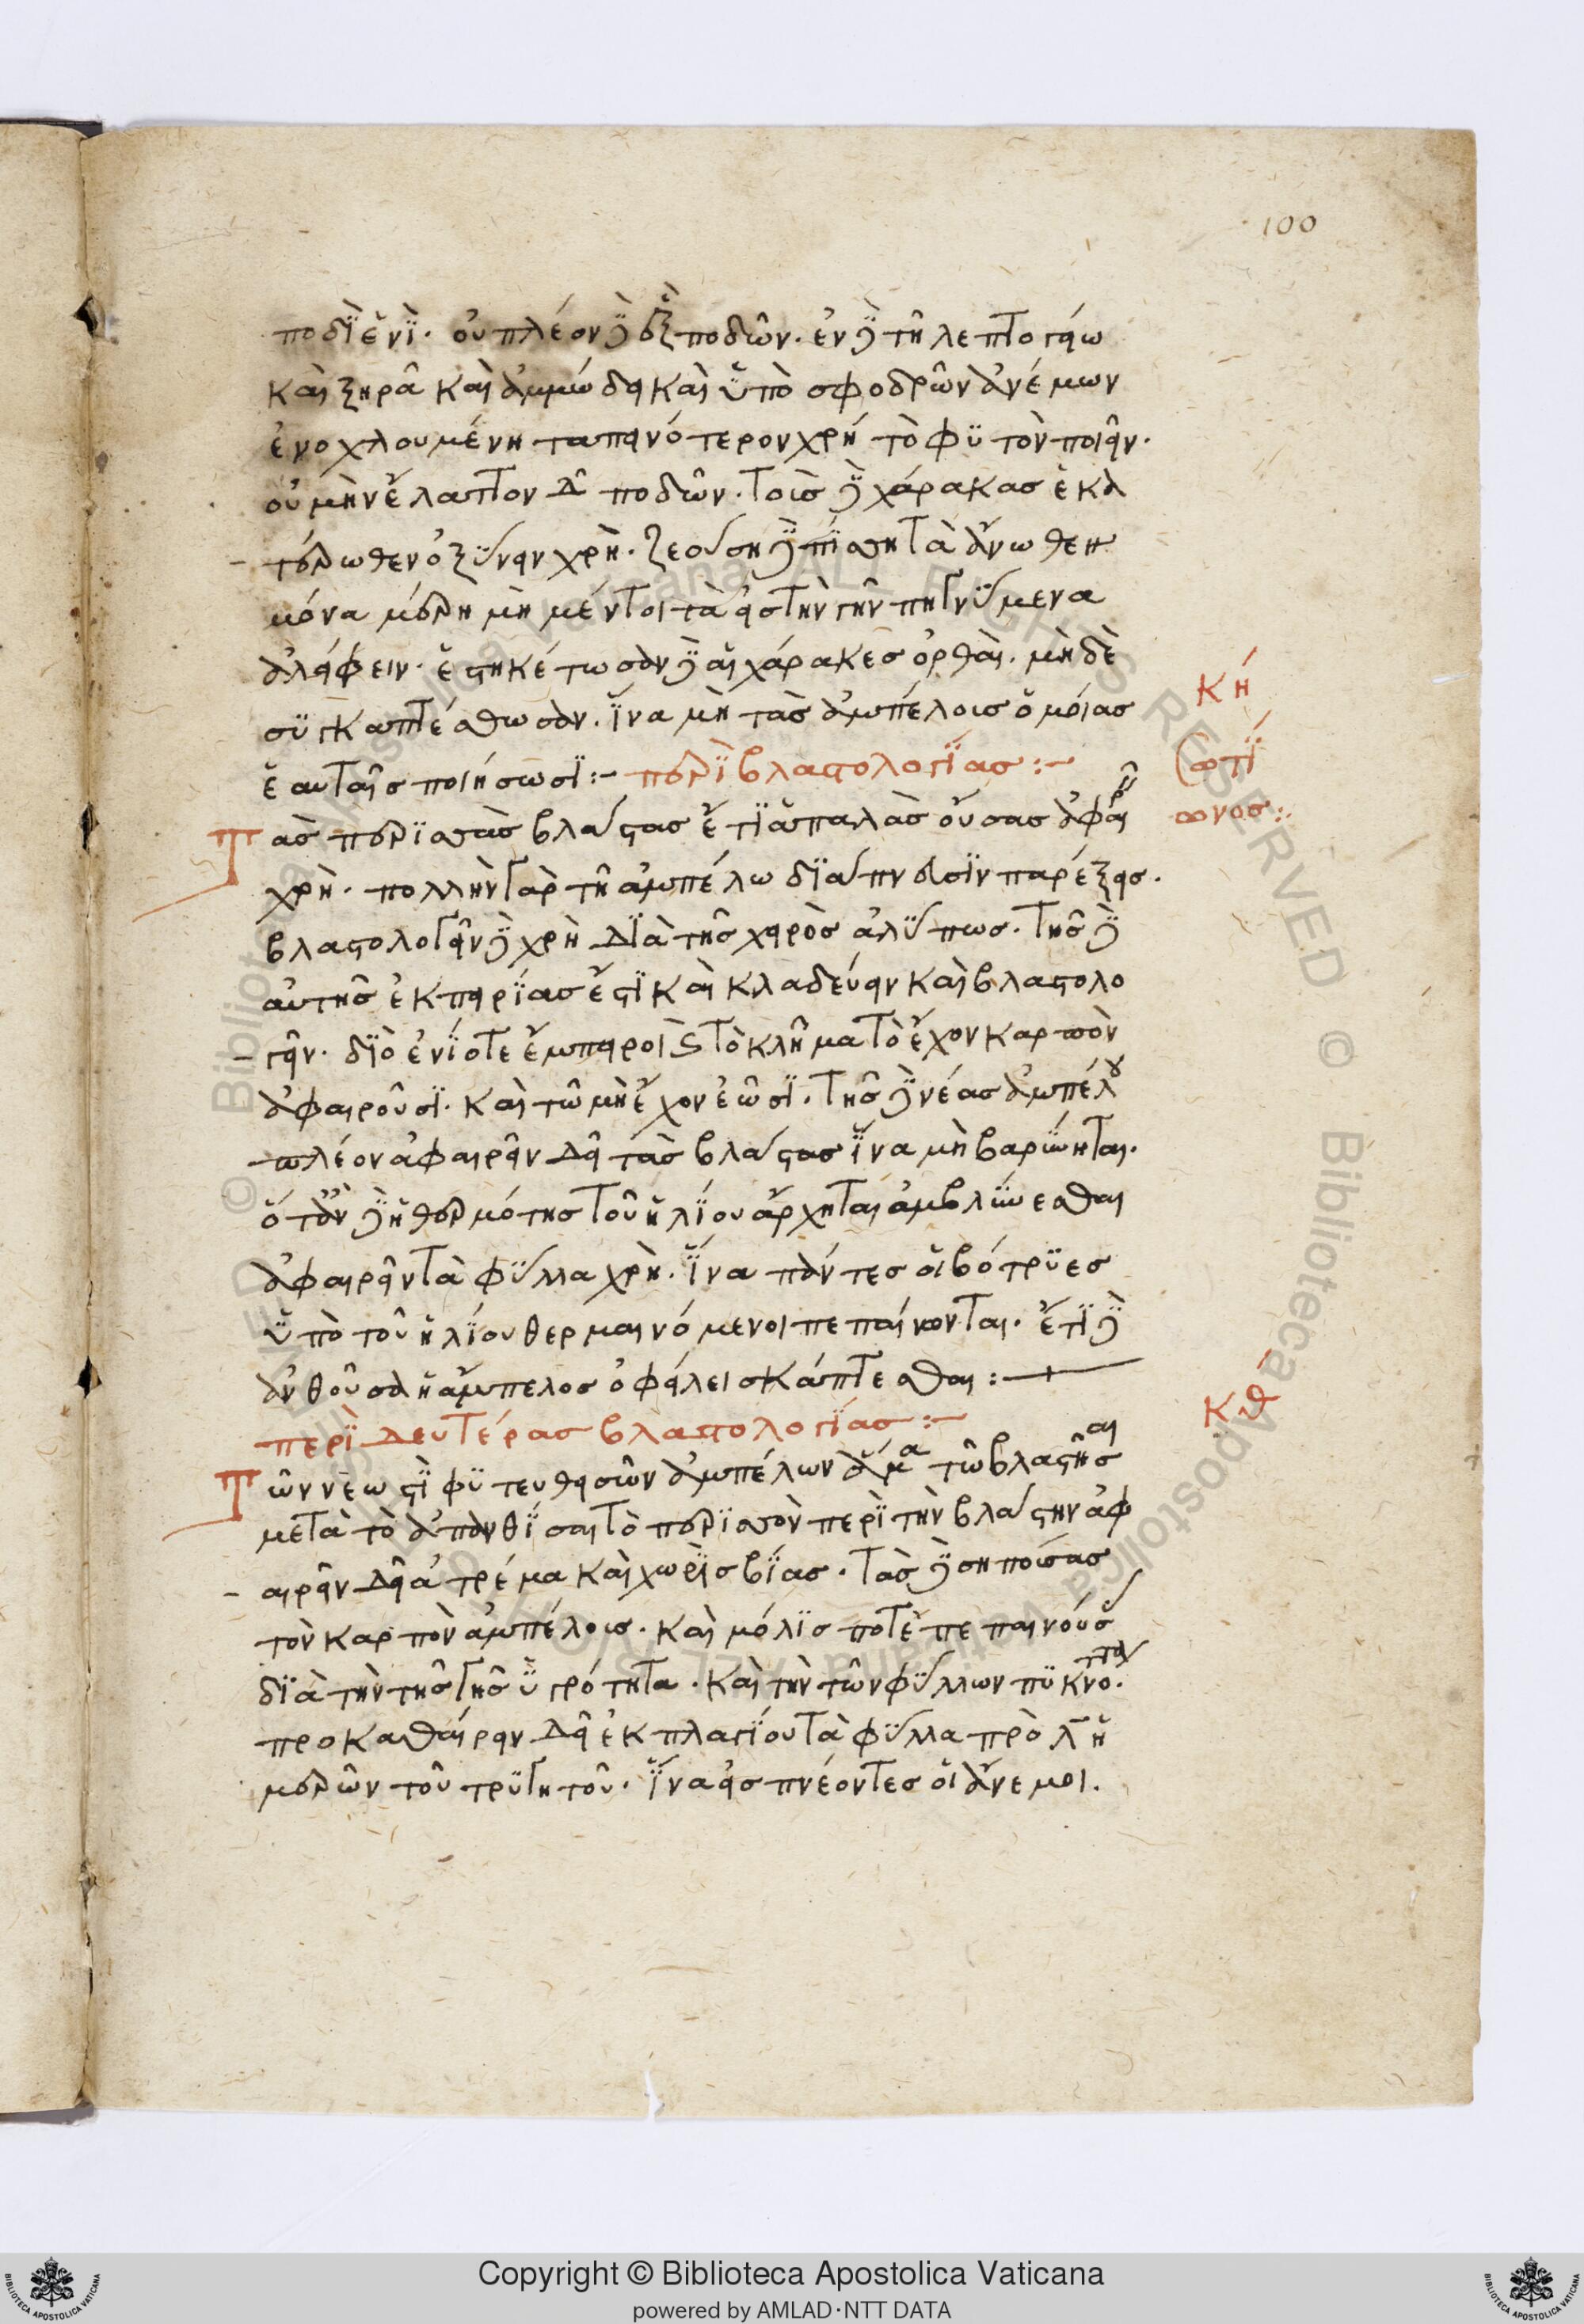 100
ποδὶ ἑνί· οὐ πλέον δὲ ἓξ ποδῶν· ἐν δὲ τῆ λεπτογείω
καὶ ξηρᾶ καὶ ἀμμώδει καὶ ὑπὸ σφοδρῶν ἀνέμων
ἐνοχλουμένη ταπεινότερον χρὴ τὸ φϋτὸν ποιεῖν·
οὐ μὴν ἔλαττον δ̂ ποδῶν· τοὺς δὲ χάρακας ἑκα
τέρωθεν ὀξύνειν χρὴ· ζεούση δὲ πίσση τὰ ἄνωθεν
μόνα μέρη μὴ μέντοι τὰ εἰς τὴν γῆν πηγνύμενα
ἀλείφειν· ἑστηκέτωσαν δὲ αἱ χάρακες ὀρθαὶ· μὴ δὲ
συγκαπτέσθωσαν· ἵνα μὴ τὰς ἀμπέλους ὁμοίας
κη
ἑαυταῖς ποιήσωσϊ:- περὶ βλαστολογίας:-
Σωτί
Τὰς περισσὰς βλάστας ἔτι ἁπαλὰς οὔσας ἀφαιρεῖν
ωνος:
χρὴ· πολλὴν γὰρ τῆ ἀμπέλω διάπνευσιν παρέξεις·
βλαστολογεῖν δὲ χρὴ διὰ τῆς χειρὸς ἀλύπως· τῆς δὲ
αὐτῆς ἐκπειρίας ἐστὶ καὶ κλαδεύειν καὶ βλαστολο
γεῖν· διὸ ἐνίοτε ἔμπειροι ϛ τὸ κλῆμα τὸ ἔχον καρπὸν
ἀφαιροῦσϊ· καὶ τῶ μὴ ἔχον ἐῶσϊ· τῆς δὲ νέας ἀμπέλου
πλέον ἀφαιρεῖν δεῖ τὰς βλάστας ἵνα μὴ βαρύνηται·
ὅταν δὲ ἡ θερμότης τοῦ ἡλίου ἄρχηται ἀμβλύνεσθαι
ἀφαιρεῖν τὰ φύλλα χρὴ· ἵνα πάντες οἱ βότρυες
ὑπὸ τοῦ ἡλίου θερμαινόμενοι πεπαίνωνται· ἔτι δὲ
ἀνθοῦσα ἡ ἄμπελος ὀφείλει σκάπτεσθαι:-
κθ
περὶ δευτέρας βλαστολογίας:-
Τῶν νεωστὶ φυτευθεισῶν ἀμπέλων ἅμα τῶ βλαστῆσαι
μετὰ τὸ ἀπανθίσαι τὸ περισσὸν περὶ τὴν βλάστην ἀφ
αιρεῖν δεῖ ἀτρέμα καὶ χωρὶς βίας· τὰς δὲ σηπούσας
τὸν καρπὸν ἀμπέλους· καὶ μόλις ποτὲ πεπαινούσας
διὰ τὴν τῆς γῆς ὑγρότητα· καὶ τὴν τῶν φύλλων πυκνότητα·
προκαθαίρειν δεῖ ἐκ πλαγίου τὰ φύλλα πρὸ λ ἡ
μερῶν τοῦ τρυγητοῦ· ἵνα εἰσπνέοντες οἱ ἄνεμοι.